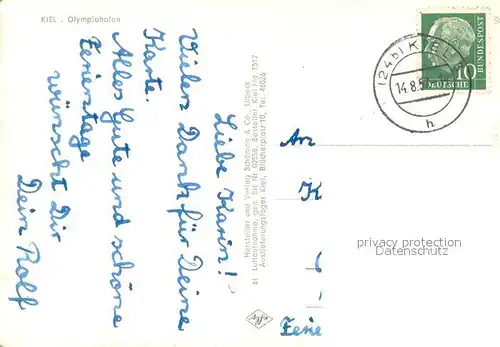 KIEL . Olympiahafen
Liebe Karin!
Vielen Dank für Deine
Karte.
Alles Gute und schöne
Ferientage
wünscht Dir
Dein Rolf
Hersteller und Verlag Schöning & Co., Lübeck
Luftaufnahme, gen. SH Nr. 02558, Bestellnr. Kiel Flg. 1512
Auslieferungslager Kiel, Blücherplatz 10, Tel. 46026
(24b) KIEL
14.8.5
h
10
DEUTSCHE
BUNDESPOST
An
K
Ferie
privacy protection
Datenschutz